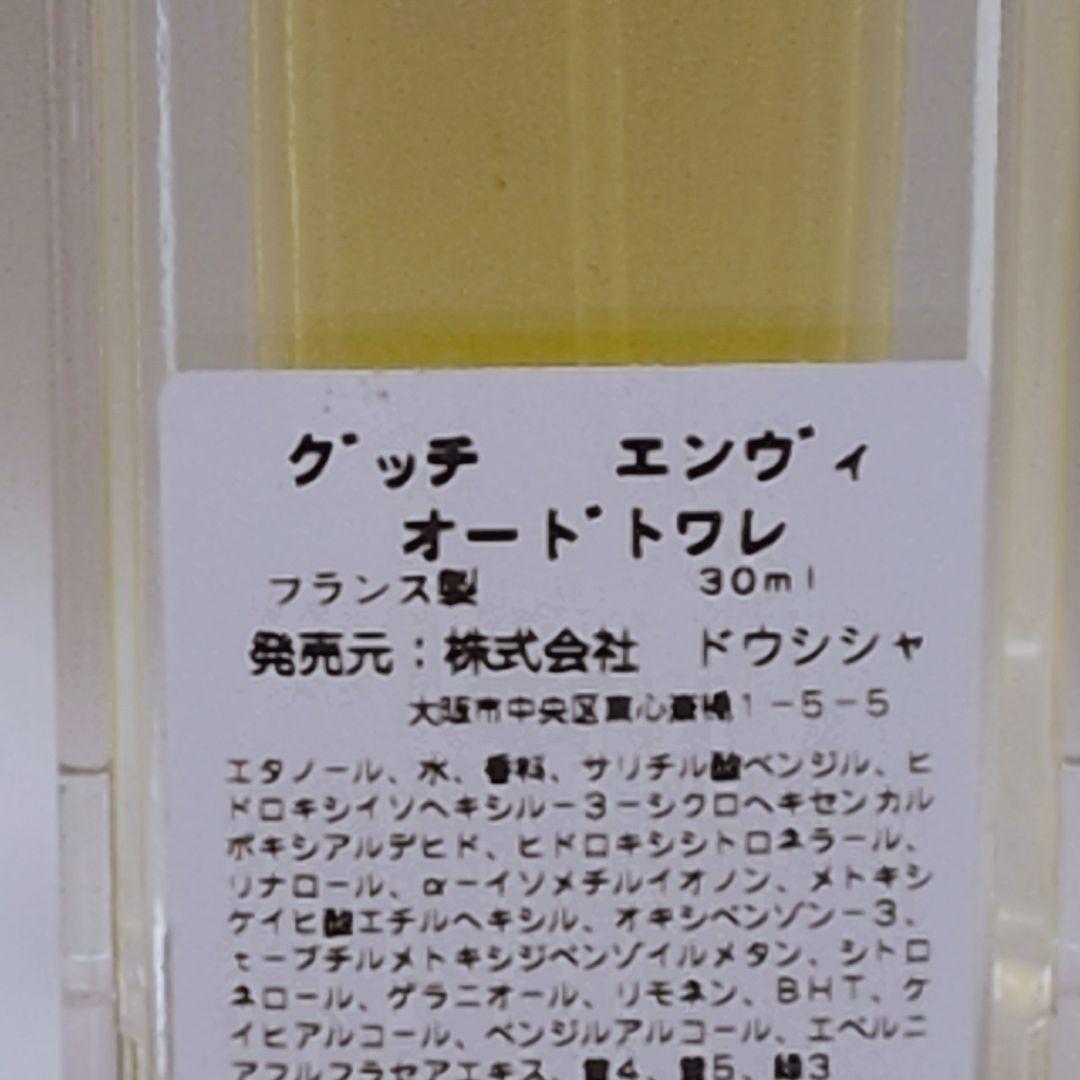 グッチ　エンヴィ
オードトワレ
フランス製　30ml
発売元：株式会社　ドウシシャ
大阪市中央区東心斎橋1-5-5
エタノール、水、香料、サリチル酸ベンジル、ヒ
ドロキシイソヘキシル-3-シクロヘキセンカル
ボキシアルデヒド、ヒドロキシシトロネラール、
リナロール、α-イソメチルイオノン、メトキシ
ケイヒ酸エチルヘキシル、オキシベンゾン-3、
t-ブチルメトキシジベンゾイルメタン、シトロ
ネロール、ゲラニオール、リモネン、BHT、ケ
イヒアルコール、ベンジルアルコール、エベルニ
アフルフラセアエキス、黄4、黄5、緑3